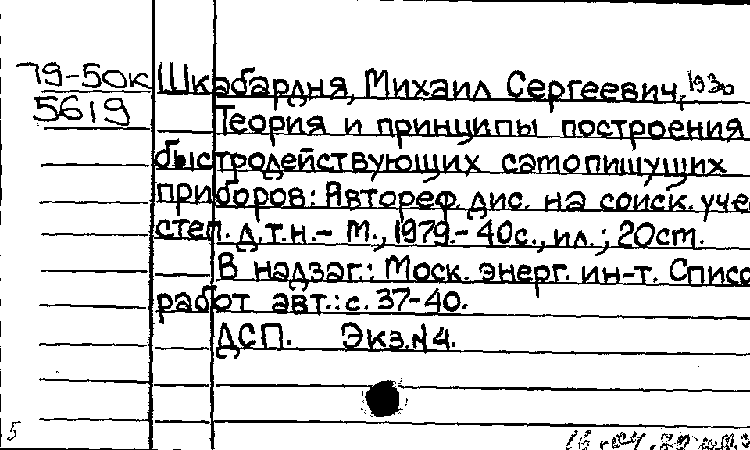 79-50к Шкабардня, Михаил Сергеевич, 1930
5619 Теория и принципы построения
быстродействующих самопишущих
приборов: Автореф. дис. на соиск. уче
степ. д.т.н. - М., 1979. - 40с., ил.; 20см.
В надзаг.: Моск. энерг. ин-т. Списо
работ авт.: с. 37-40.
ДСП. Экз. N 4.
5